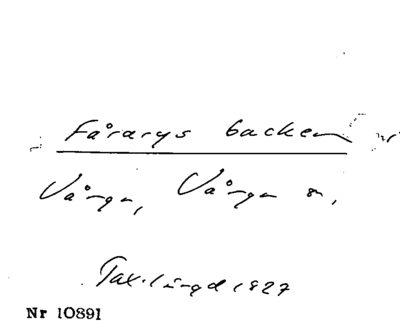 Fårarys backen
Vånga, Vånga sn,
Tax.längd 1827
Nr 10891